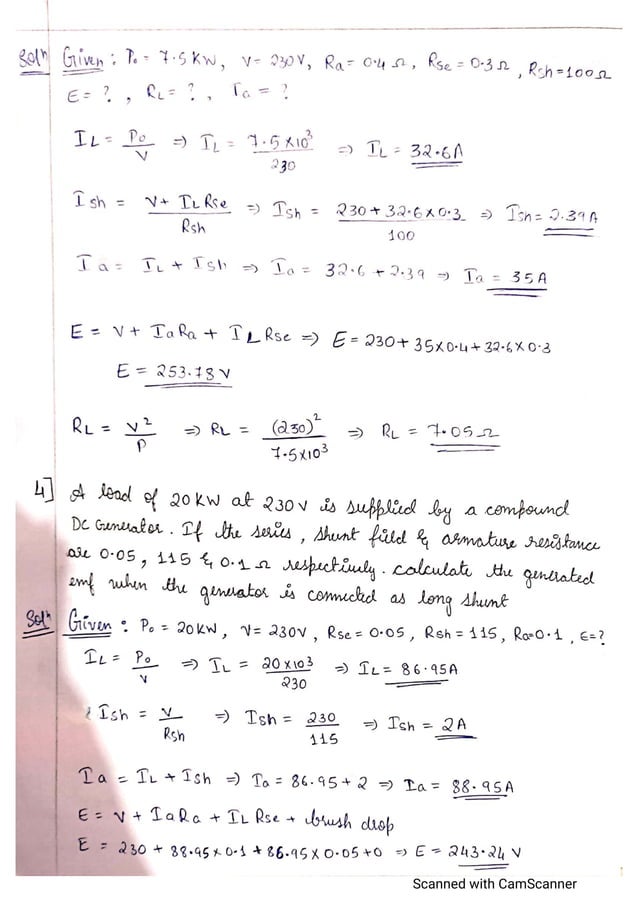 Solⁿ Given : Po = 7.5 KW, V = 230V, Ra = 0.4 Ω, Rse = 0.3 Ω, Rsh = 100 Ω
E = ? , RL = ? , Ia = ?
IL = Po/V ⇒ IL = 7.5 × 10³/230 ⇒ IL = 32.6A
Ish = V + IL Rse/Rsh ⇒ Ish = 230 + 32.6 × 0.3/100 ⇒ Ish = 2.39A
Ia = IL + Ish ⇒ Ia = 32.6 + 2.39 ⇒ Ia = 35A
E = V + IaRa + ILRse ⇒ E = 230 + 35 × 0.4 + 32.6 × 0.3
E = 253.78 V
RL = V²/P ⇒ RL = (230)²/7.5 × 10³ ⇒ RL = 7.05 Ω
4] A load of 20 KW at 230 V is supplied by a compound
DC Generator. If the series, shunt field & armature resistance
are 0.05, 115 & 0.1 Ω respectively. calculate the generated
emf when the generator is connected as long shunt
Solⁿ Given : Po = 20KW, V = 230V, Rse = 0.05, Rsh = 115, Ra=0.1, E=?
IL = Po/V ⇒ IL = 20 × 10³/230 ⇒ IL = 86.95A
Ish = V/Rsh ⇒ Ish = 230/115 ⇒ Ish = 2A
Ia = IL + Ish ⇒ Ia = 86.95 + 2 ⇒ Ia = 88.95A
E = V + IaRa + ILRse + brush drop
E = 230 + 88.95 × 0.1 + 86.95 × 0.05 + 0 ⇒ E = 243.24 V
Scanned with CamScanner